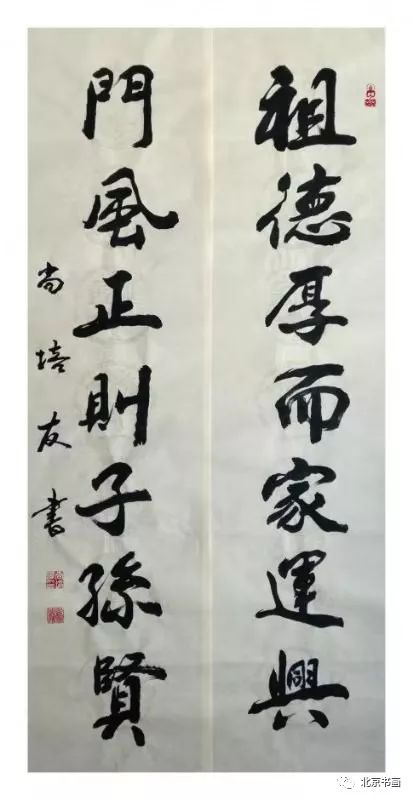 祖德厚而家運興
門風正則子孫賢
尚培友書
北京书画